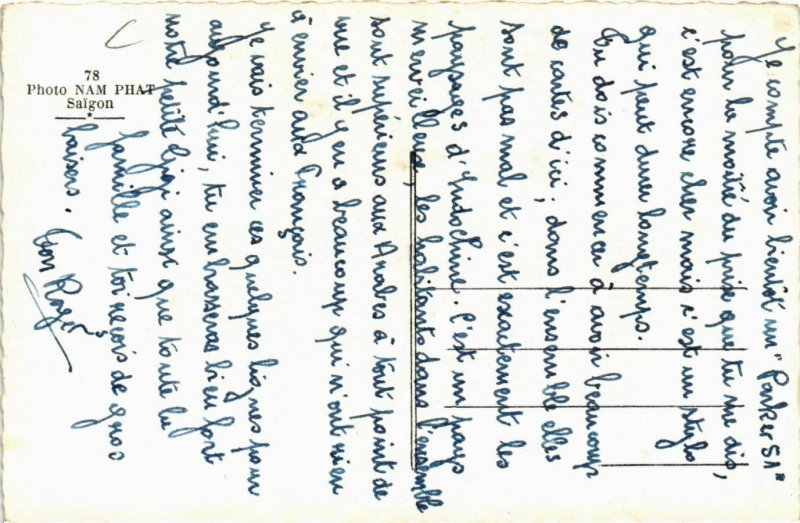 78
Photo NAM PHAT
Saïgon
Je compte avoir bientôt un "Parker 51"
pour la moitié du prix que tu me dis,
c'est encore cher mais c'est un stylo
qui peut durer longtemps.
Tu dois commencer à avoir beaucoup
de cartes d'ici ; dans l'ensemble elles
sont pas mal et c'est exactement les
paysages d'Indochine. C'est un pays
merveilleux, les habitants dans l'ensemble
sont supérieurs aux Arabes à tout point de
vue et il y en a beaucoup qui n'ont rien
à envier aux Français.
Je vais terminer ces quelques lignes pour
aujourd'hui, tu embrasseras bien fort
notre petite Gigi ainsi que toute la
famille et toi reçois de gros
baisers. Ton Roger